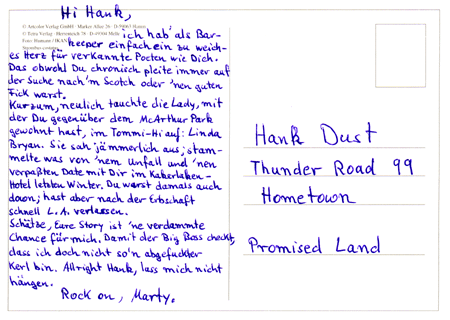 Hi Hank,
© Ansicolor Verlag GmbH · Marker Allee 26 · D-59065 Hamm
ich hab' als Bar-
keeper einfach ein zu weich-
es Herz für verkannte Poeten wie Dich.
Das obwohl Du chronisch pleite immer auf
der Suche nach 'm Scotch oder 'nen guten
Fick warst.
Kurzum, neulich tauchte die Lady, mit
der Du gegenüber dem McArthur Park
gewohnt hast, im Tommi-Hi auf: Linda
Bryan. Sie sah jämmerlich aus; stam-
melte was von 'nem Unfall und 'nen
verpaßten Date mit Dir im Kakerlaken-
Hotel letzten Winter. Du warst damals auch
down; hast aber nach der Erbschaft
schnell L.A. verlassen.
Schätze, Eure Story ist 'ne verdammte
Chance für mich. Damit der Big Boss checkt,
dass ich doch nicht so'n abgefuckter
Kerl bin. Allright Hank, lass mich nicht
hängen.
Rock on, Marty.
Hank Dust
Thunder Road 99
Hometown
Promised Land